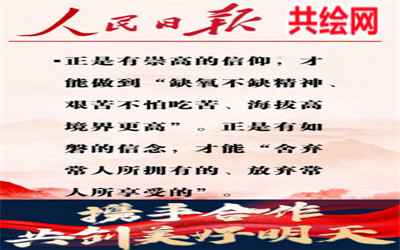 人民日报 共绘网
•正是有崇高的信仰，才
能做到“缺氧不缺精神、
艰苦不怕吃苦、海拔高
境界更高”。正是有如
磐的信念，才能“舍弃
常人所拥有的、放弃常
人所享受的”。
携手合作
共创美好明天